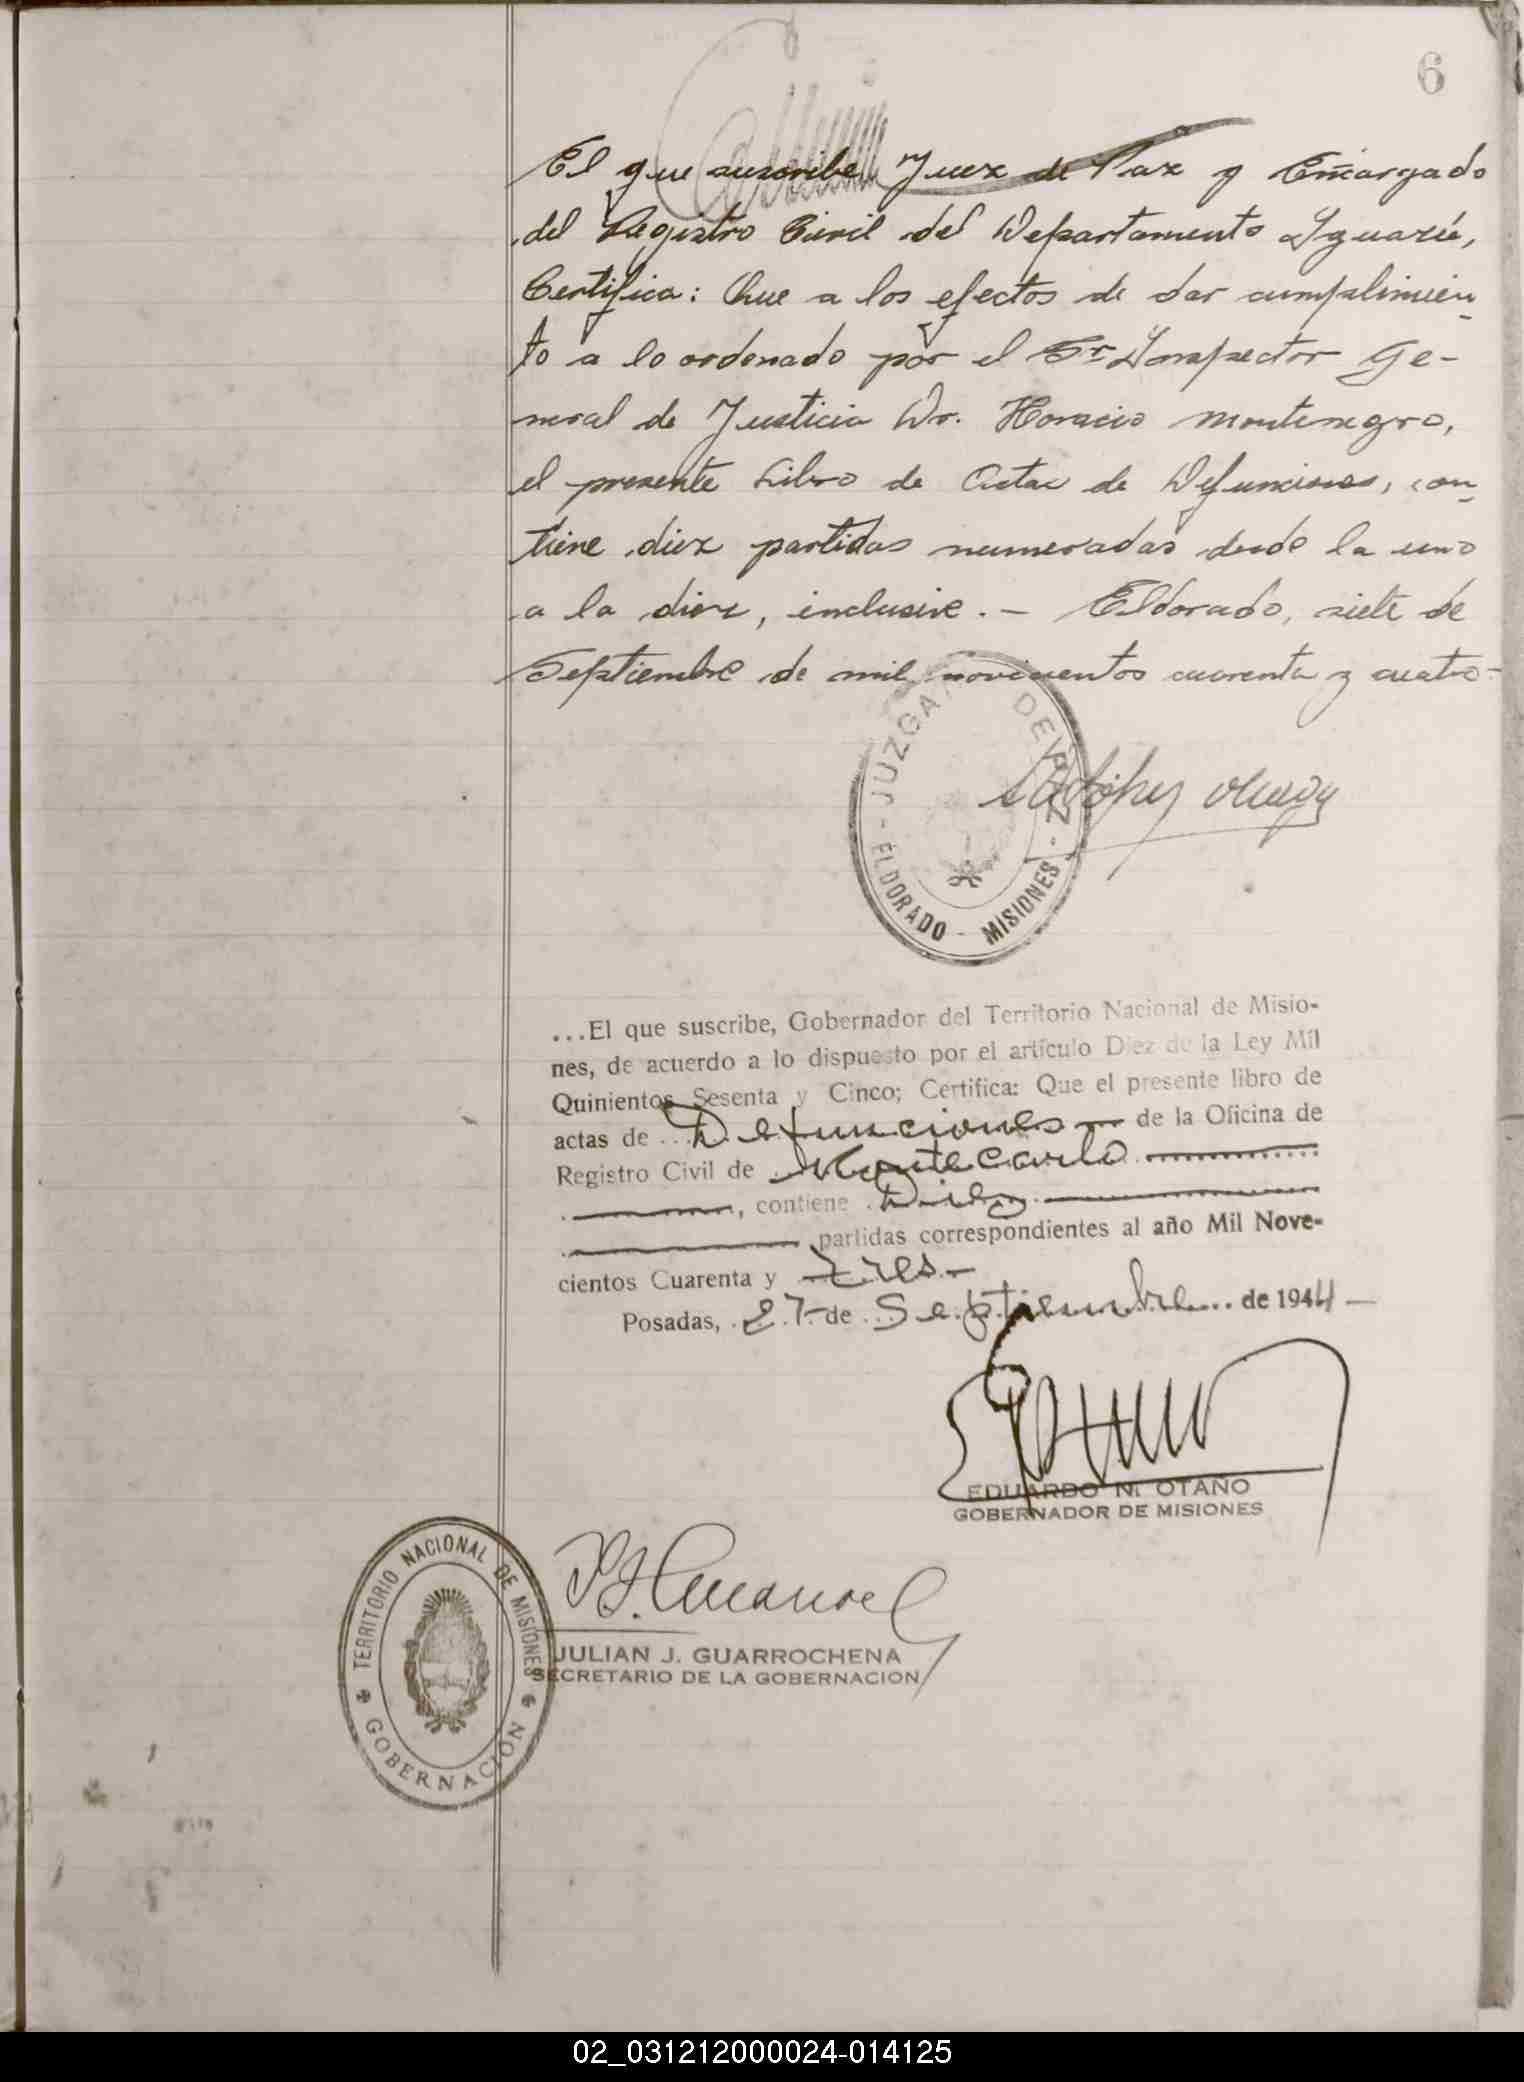 6
El que suscribe Juez de Paz y Encargado
del Registro Civil del Departamento Iguazú,
Certifica: Que a los efectos de dar cumplimien
to a lo ordenado por el Sr. Inspector Ge-
neral de Justicia Dr. Horacio Montenegro,
el presente Libro de Actas de Defunciones, con
tiene diez partidas numeradas desde la uno
a la diez, inclusive. — Eldorado, siete de
Septiembre de mil novecientos cuarenta y cuatro-
JUZGA DE PAZ
- ELDORADO - MISIONES -
...El que suscribe, Gobernador del Territorio Nacional de Misio-
nes, de acuerdo a lo dispuesto por el artículo Diez de la Ley Mil
Quinientos Sesenta y Cinco; Certifica: Que el presente libro de
actas de ... Defunciones — de la Oficina de
Registro Civil de ... Montecarlo
, contiene . Diez
partidas correspondientes al año Mil Nove-
cientos Cuarenta y tres -
Posadas, 27 de Septiembre de 1944 —
EDUARDO N. OTAÑO
GOBERNADOR DE MISIONES
TERRITORIO NACIONAL DE MISIONES
GOBERNACION
JULIAN J. GUARROCHENA
SECRETARIO DE LA GOBERNACION
02_031212000024-014125